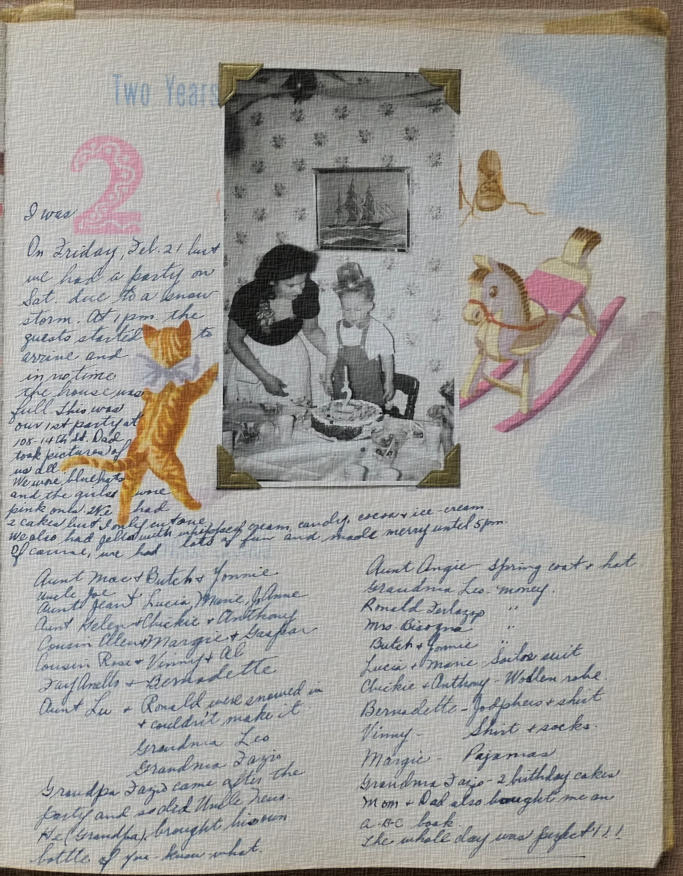 Two Years
2
I was
On Friday, Feb. 21 but
we had a party on
Sat. due to a snow
storm. At 1 pm the
guests started to
arrive and
in no time
the house was
full. This was
our 1st party at
108-14th St. Dad
took pictures of
us all.
We wore blue hats
and the girls wore
pink ones. We had
2 cakes but I only cut one.
We also had jello with whipped cream, candy, cocoa + ice-cream.
Of course, we had lots of fun and made merry until 5 pm
Aunt Mae + Butch + Yonnie
Uncle Joe
Aunt Jean + Lucia, Marie, JoAnne
Aunt Helen + Chickie + Anthony
Cousin Ellen + Margie + Gaspar
Cousin Rose + Vinny + Al
+ Bernadette
Aunt Lu + Ronald were snowed in
+ couldn't make it
Grandma Leo
Grandma Fazio
Grandpa Fazio came after the
party and so did Uncle
He (Grandpa) brought his own
bottle of you-know what.
Aunt Angie Spring coat + hat
Grandma Leo. money.
Ronald "
Mrs. "
Butch + Yonnie "
Lucia + Marie Sailor suit
Chickie + Anthony - Woolen robe.
Bernadette - Jodphers + shirt
Vinny - Shirt + socks.
Margie - Pajamas
Grandma Fazio - 2 birthday cakes
Mom + Dad also bought me an
a-BC book
The whole day was perfect!!!